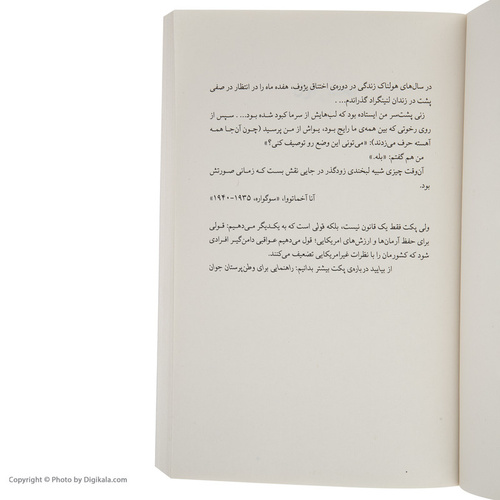 در سال‌های هولناک زندگی در دوره‌ی اختناق یژوف، هفده ماه را در انتظار در صفی
پشت در زندان لنینگراد گذراندم... .
زنی پشت‌سر من ایستاده بود که لب‌هایش از سرما کبود شده بود... . سپس از
روی رخوتی که بین همه‌ی ما رایج بود، یواش از من پرسید (چون آن‌جا همه
آهسته حرف می‌زدند): «می‌تونی این وضع رو توصیف کنی؟»
من هم گفتم: «بله.»
آن‌وقت چیزی شبیه لبخندی زودگذر در جایی نقش بست که زمانی صورتش
بود.
آنا آخماتووا، «سوگواره، ۱۹۳۵-۱۹۴۰»
ولی پکت فقط یک قانون نیست، بلکه قولی است که به یکدیگر می‌دهیم: قولی
برای حفظ آرمان‌ها و ارزش‌های امریکایی؛ قول می‌دهیم عواقبی دامن‌گیر افرادی
شود که کشورمان را با نظرات غیرامریکایی تضعیف می‌کنند.
از بیایید درباره‌ی پکت بیشتر بدانیم: راهنمایی برای وطن‌پرستان جوان
Copyright © Photo by Digikala.com